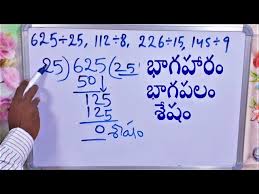 625÷25, 112÷8, 226÷15, 145÷9
25) 625 (25
50↓
125
125
0 శేషం
భాగహారం
భాగఫలం
శేషం